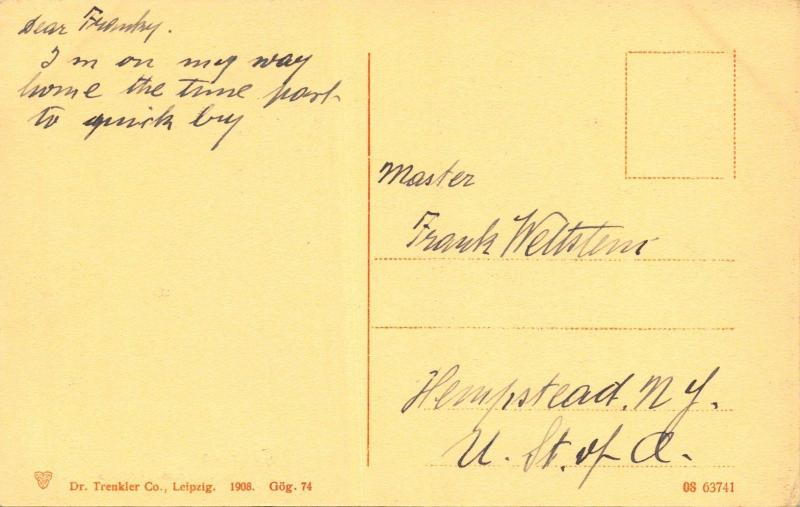 Dear Franky.
I m on my way
home the time past
to quick by
Master
Frank Wettstein
Hempstead. N Y.
U. St. of A.
Dr. Trenkler Co., Leipzig. 1908. Gög. 74
08 63741